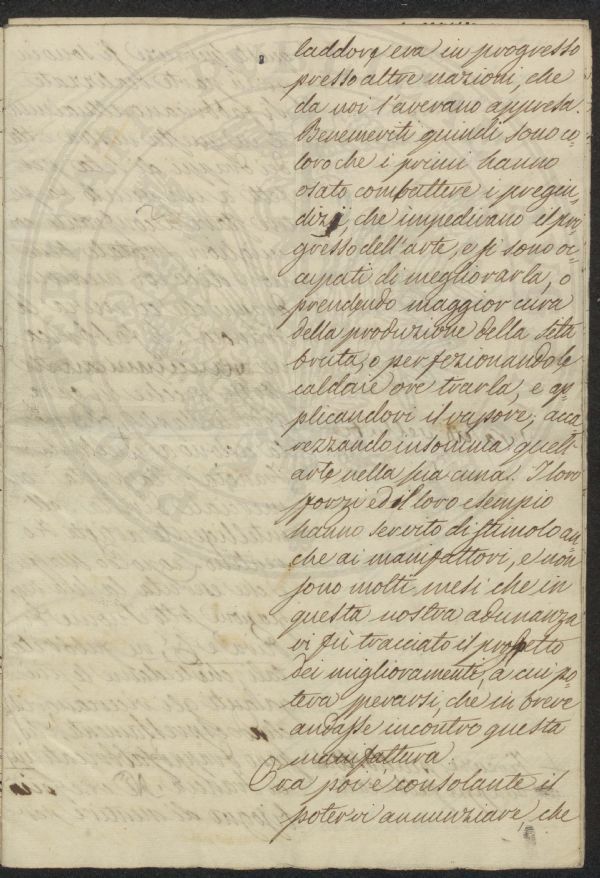 laddove era in progresso
presso altre nazioni, che
da noi l'aveano appresa.
Benemeriti quindi sono co-
loro che i primi hanno
osato combattere i pregiu-
dizi, che impedivano il pro
gresso dell'arte, e si sono oc-
cupati di megliorarla, o
prendendo maggior cura
della produzione della seta
bruta, o perfezionando le
caldaie ove trarla, e ap-
plicandovi il vapore; acca
rezzando insomma quell'
arte nella sua cuna. I loro
sforzi ed il loro esempio
hanno servito di stimolo an-
che ai manifattori, e non
sono molti mesi che in
questa nostra adunanza
vi fù tracciato il prospetto
dei miglioramenti, a cui po-
teva sperarsi, che in breve
andasse incontro questa
manifattura.
Ora poi è consolante il
potervi annunziare, che